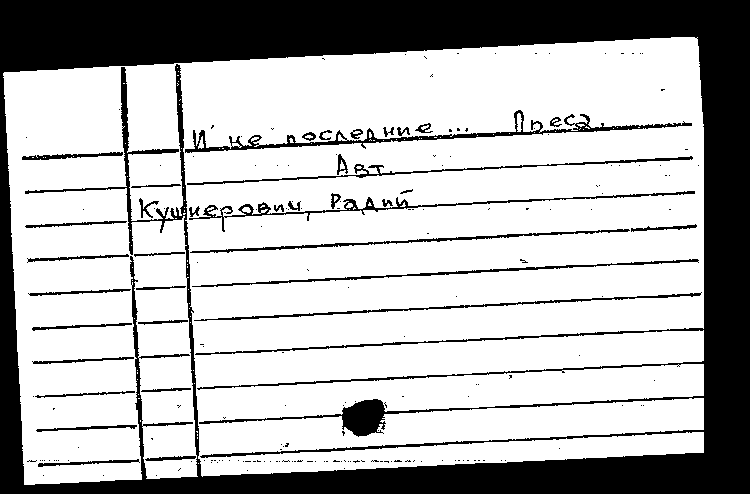 И не последние ... Пьеса.
Авт.
Кушнерович, Радий